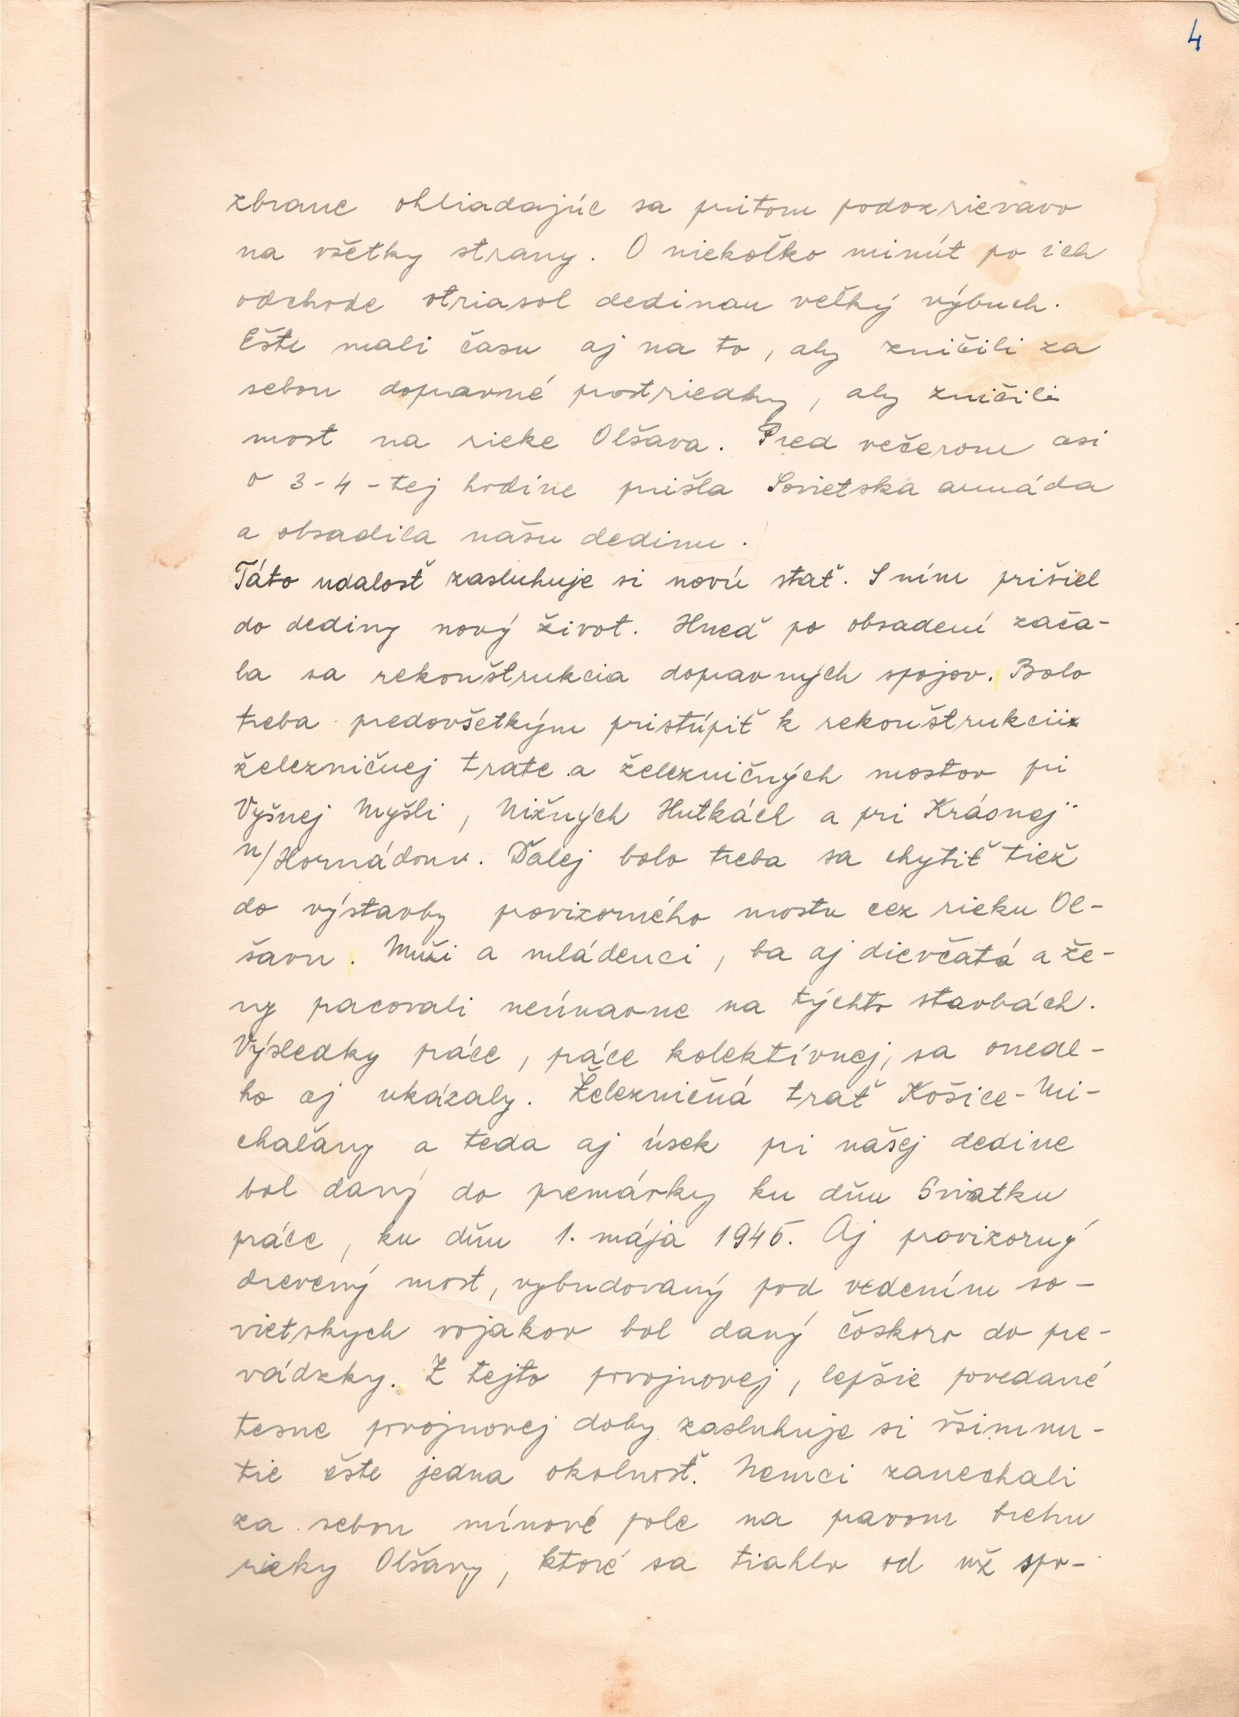 4
zbrane ohliadajúc sa pritom podozrievavo
na všetky strany. O niekoľko minút po ich
odchode otriasol dedinou veľký výbuch.
Ešte mali času aj na to, aby zničili za
sebou dopravné prostriedky, aby zničili
most na rieke Olšava. Pred večerom asi
o 3-4-tej hodine prišla Sovietska armáda
a obsadila našu dedinu.
Táto udalosť zasluhuje si novú stať. S ním prišiel
do dediny nový život. Hneď po obsadení zača-
la sa rekonštrukcia dopravných spojov. Bolo
treba predovšetkým pristúpiť k rekonštrukcii
železničnej trate a železničných mostov pri
Vyšnej Myšli, Nižných Hutkách a pri Krásnej
n/Hornádom. Ďalej bolo treba sa chytiť tiež
do výstavby provizorného mostu cez rieku Ol-
šavu. Muži a mládenci, ba aj dievčatá a že-
ny pracovali neúnavne na týchto stavbách.
Výsledky práce, práce kolektívnej, sa onedl-
ho aj ukázaly. Železničná trať Košice-Mi-
chaľany a teda aj úsek pri našej dedine
bol daný do premávky ku dňu Sviatku
práce, ku dňu 1. mája 1945. Aj provizorný
drevený most, vybudovaný pod vedením so-
vietskych vojakov bol daný čoskoro do pre-
vádzky. Z tejto povojnovej, lepšie povedané
tesne povojnovej doby zasluhuje si všimnu-
tie ešte jedna okolnosť. Nemci zanechali
za sebou mínové pole na pravom brehu
rieky Olšavy, ktoré sa tiahlo od už spo-